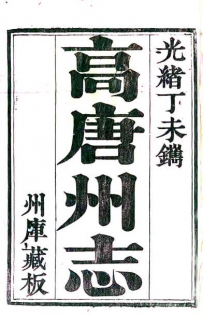 光緒丁未鐫
高唐州志
州庫藏板